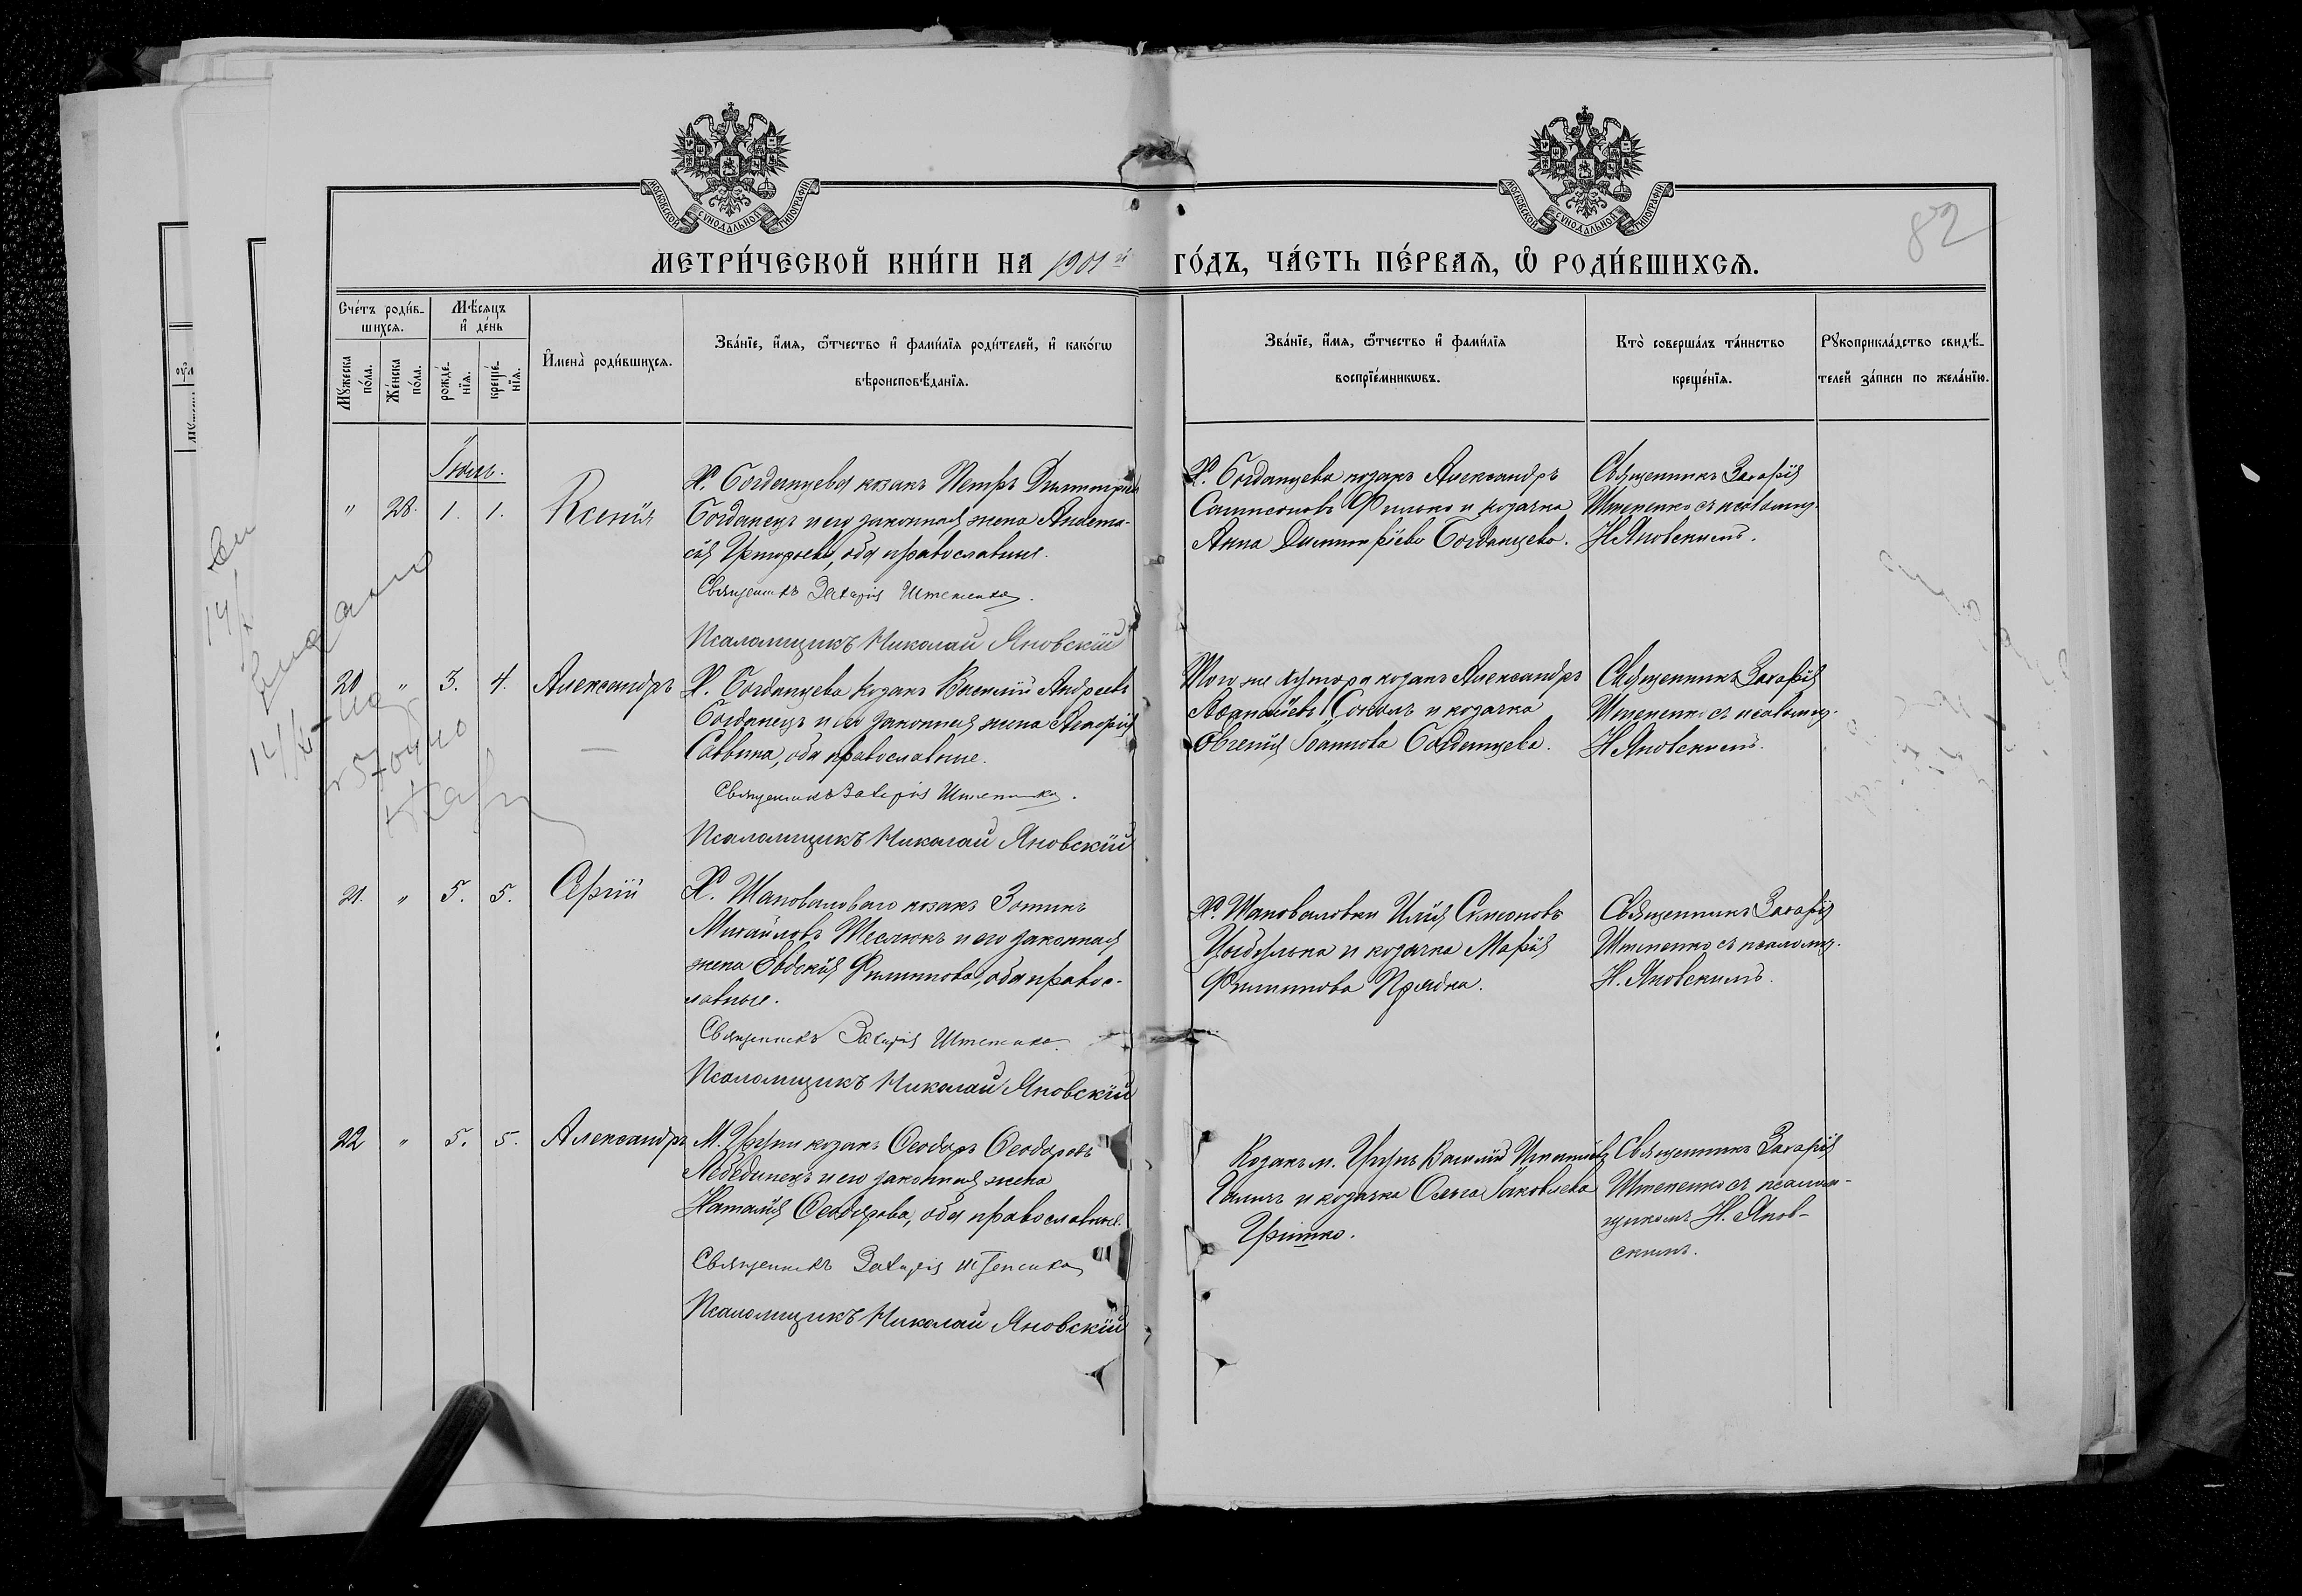 МОСКОВСКОЙ СѴНОДАЛЬНОЙ ТИПОГРАФІИ
МОСКОВСКОЙ СѴНОДАЛЬНОЙ ТИПОГРАФІИ
82
МЕТРИ́ЧЕСКОЙ КНИ́ГИ НА 1901й ГО́ДЪ, ЧА́СТЬ ПЕ́РВАЯ, Ѡ РОДИ́ВШИХСЯ.
Сче́тъ роди́в-
шихся.
Мꙋ́жеска
по́ла.
Же́нска
по́ла.
Мѣ́сяцъ
и҆ де́нь
рожде́-
нїя.
креще́-
нїя.
И҆мена̀ роди́вшихся.
Зва́нїе, и҆́мя, ѻ҆́тчество и҆ фами́лїя роди́телей, и҆ како́гѡ
вѣроисповѣ́данїя.
Зва́нїе, и҆́мя, ѻ҆́тчество и҆ фами́лїя
воспрїе́мникѡвъ.
Кто̀ соверша́лъ та́инство
креще́нїя.
Рꙋкоприкла́дство свидѣ́-
телей за́писи по жела́нїю.
Іюль.
" 28. 1. 1. Ксенія
Х. Богданцева козакъ Петръ Димитріев
Богданецъ и его законная жена Анаста-
сія Григорьева, оба православные.
Священникъ Захарія Штепенко.
Псаломщикъ Николай Яновскій
Х. Богданцева козакъ Александръ
Сампсоновъ Филько и козачка
Анна Димитріева Богданцева.
Священникъ Захарія
Штепенко съ псаломщ.
Н. Яновскимъ.
20 " 3. 4. Александръ
Х. Богданцева козакъ Василій Андреевъ
Богданецъ и его законная жена Агафія
Саввина, оба православные.
Священникъ Захарія Штепенко.
Псаломщикъ Николай Яновскій
Того же хутора козакъ Александръ
Соколъ и козачка
Евгенія Іоаннова Богданцева.
Священникъ Захарія
Штепенко съ псаломщ.
Н. Яновскимъ.
21. " 5. 5. Сергій
Х. Шаповаловаго козакъ Зотикъ
Михайловъ Теслюкъ и его законная
жена Евдокія Филиппова, оба правос-
лавные.
Священникъ Захарія Штепенко.
Псаломщикъ Николай Яновскій
Х. Шаповаловки Илія Симеоновъ
Цыбулька и козачка Марія
Филиппова Прядка.
Священникъ Захарія
Штепенко съ псаломщ.
Н. Яновскимъ.
22 " 5. 5. Александръ
М. Груни козакъ Ѳеодоръ Ѳеодоровъ
Лебединецъ и его законная жена
Наталія Ѳеодорова, оба православные.
Священникъ Захарія Штепенко
Псаломщикъ Николай Яновскій
Козакъ м. Груни Василій Игнатіевъ
и козачка Ольга Іаковлева
Гришко.
Священникъ Захарія
Штепенко съ псалом-
щикомъ Н. Янов-
скимъ.